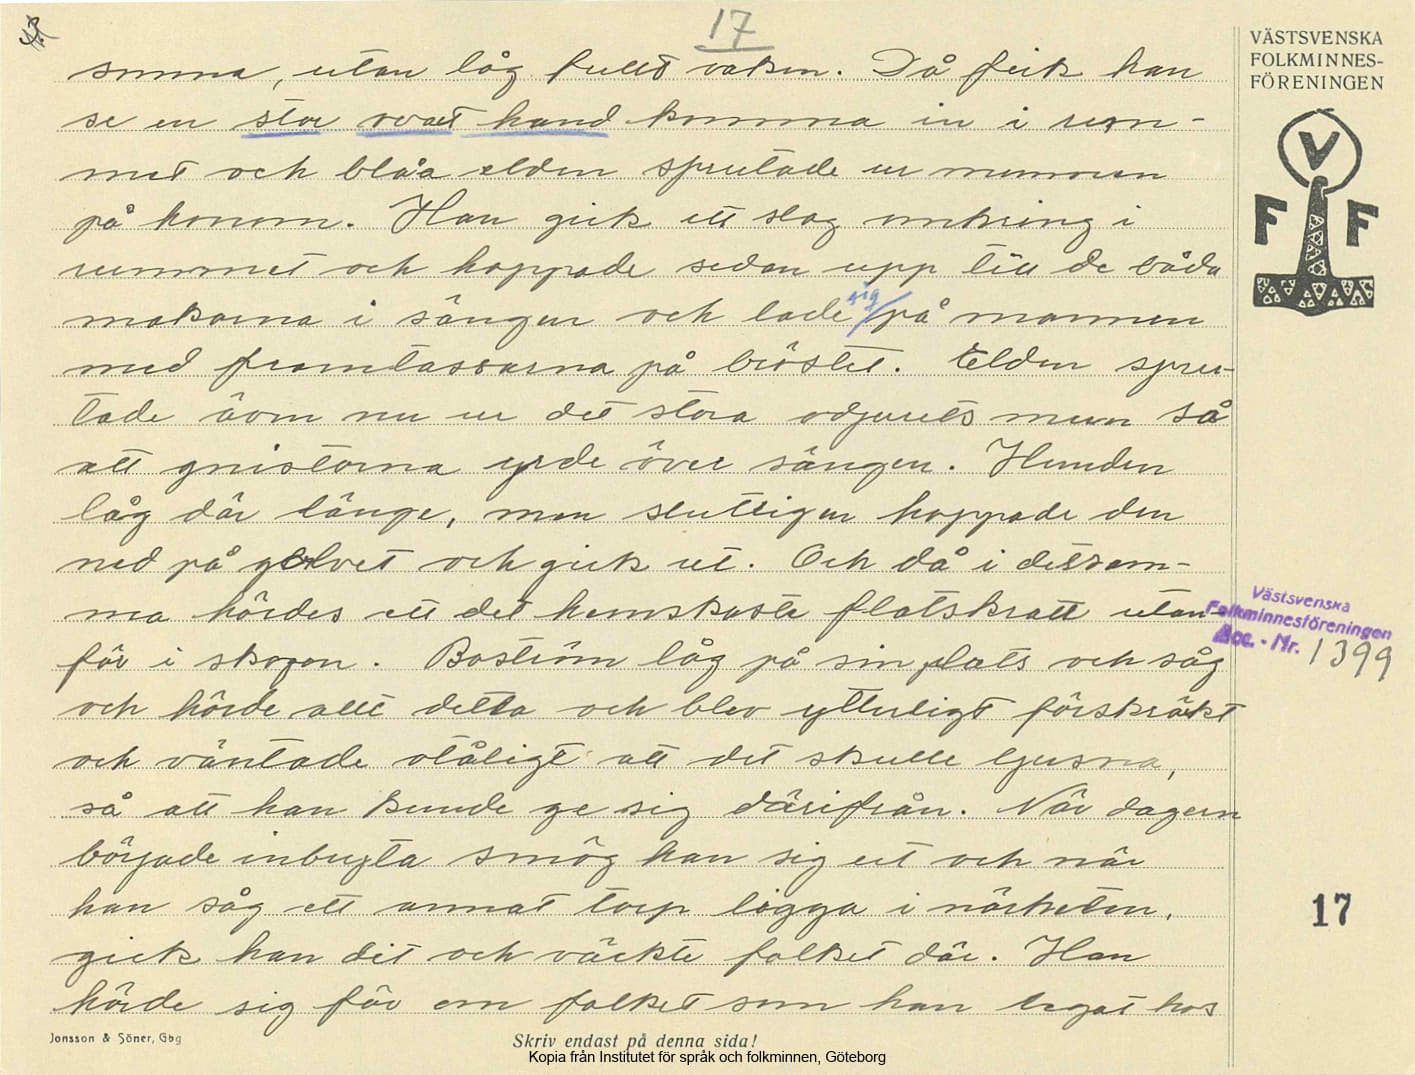 17
VÄSTSVENSKA
FOLKMINNES-
FÖRENINGEN
V
F F
somna, utan låg fullt vaken. Då fick han
se en stor svart hund komma in i rum-
met och blåa elden sprutade ur munnen
på honom. Han gick ett slag omkring i
rummet och hoppade sedan upp till de båda
makarna i sängen och lade sig på mannen
med framtassarna på bröstet. Elden spru-
tade även nu ur det stora odjurets mun så
att gnistorna yrde över sängen. Hunden
låg där länge, men slutligen hoppade den
ned på golvet och gick ut. Och då i detsam-
ma hördes ett det hemskaste flatskratt utan-
för i skogen. Boström låg på sin plats och såg
och hörde allt detta och blev ytterligt förskräckt
och väntade otåligt att det skulle ljusna,
så att han kunde ge sig därifrån. När dagern
började inbryta smög han sig ut och när
han såg ett annat torp ligga i närheten,
gick han dit och väckte folket där. Han
hörde sig för om folket som han legat hos
Västsvenska
Folkminnesföreningen
Acc. - Nr. 1399
17
Jonsson & Söner, Gbg
Skriv endast på denna sida!
Kopia från Institutet för språk och folkminnen, Göteborg